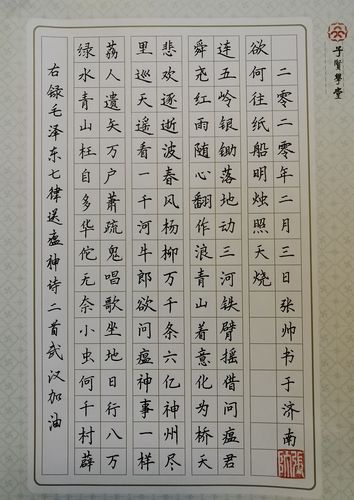 右録毛泽东七律送瘟神诗二首武汉加油
绿水青山枉自多华佗无奈小虫何千村薜
荔人遗矢万户萧疏鬼唱歌坐地日行八万
里巡天遥看一千河牛郎欲问瘟神事一样
悲欢逐逝波春风杨柳万千条六亿神州尽
舜尧红雨随心翻作浪青山着意化为桥天
连五岭银锄落地动三河铁臂摇借问瘟君
欲何往纸船明烛照天烧
二零二零年二月三日张帅书于济南
張帥
子賢學堂